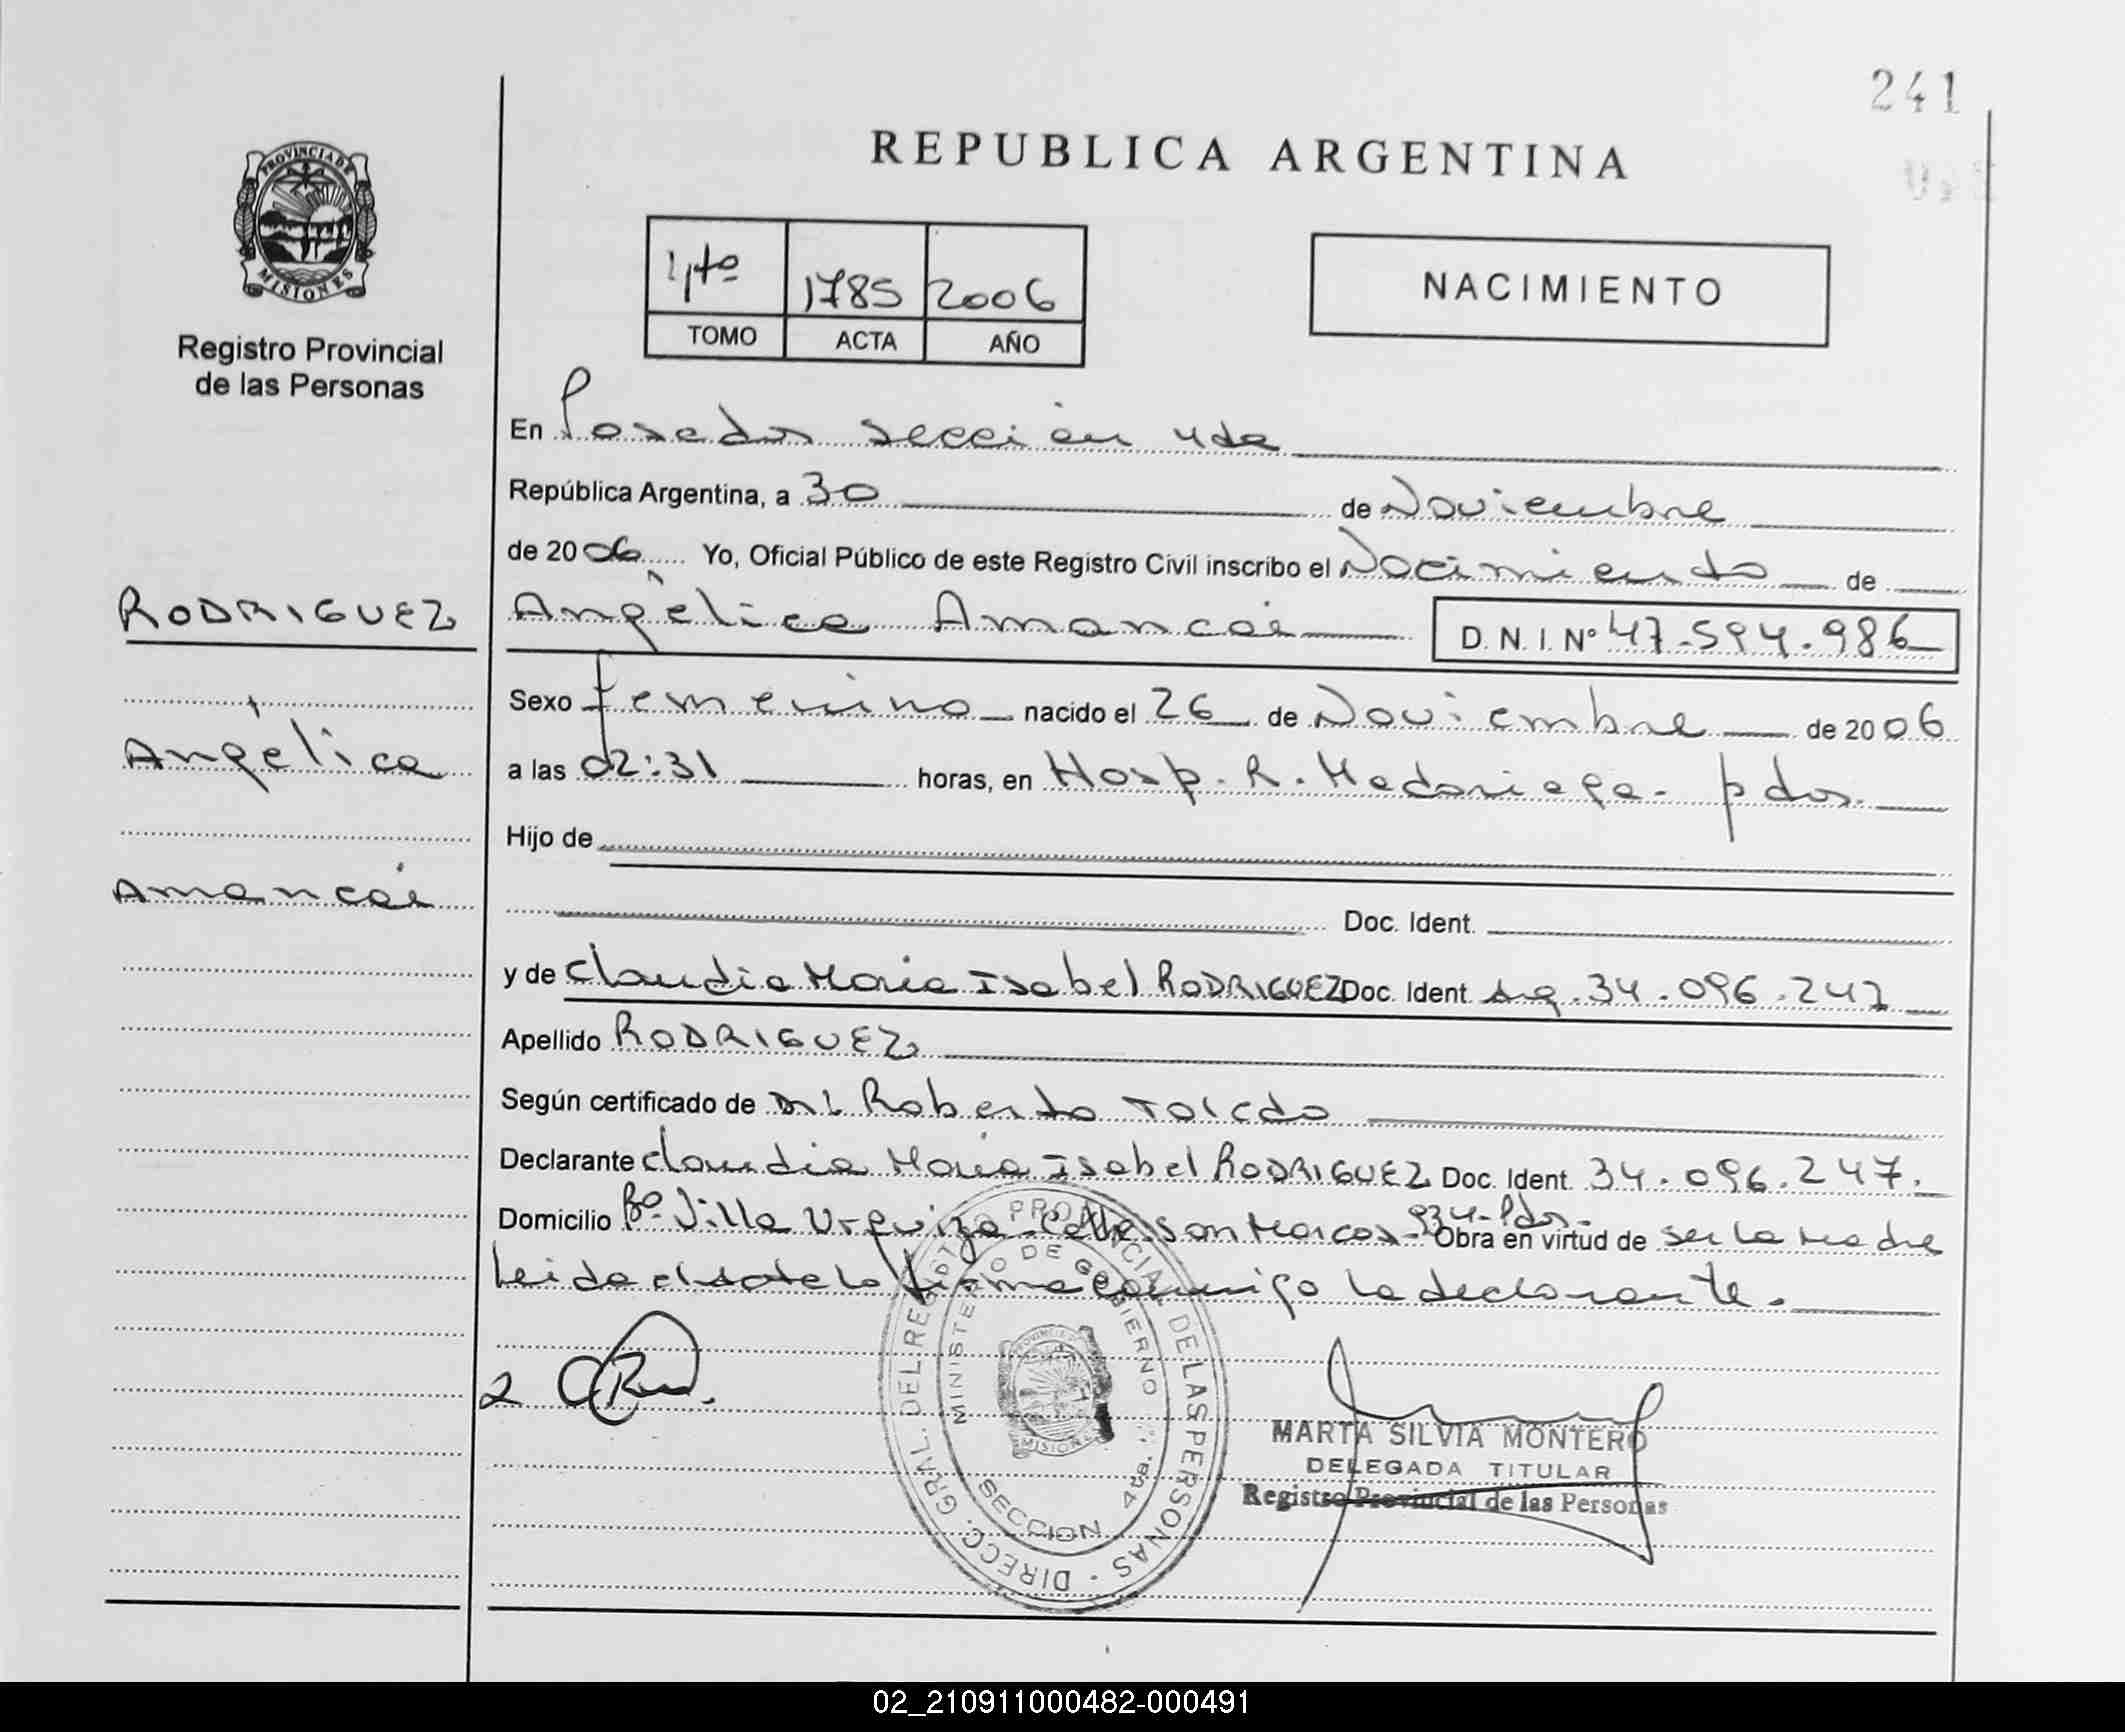 241
REPUBLICA ARGENTINA
PROVINCIA DE
MISIONES
Registro Provincial
de las Personas
4to 1785 2006
TOMO ACTA AÑO
NACIMIENTO
En Posadas sección 4ta
República Argentina, a 30 de Noviembre
de 2006 Yo, Oficial Público de este Registro Civil inscribo el Nacimiento de
RODRIGUEZ
Angélica Amancai D.N.I. Nº 47.594.986
Sexo femenino nacido el 26 de Noviembre de 2006
Angélica
a las 02:31 horas, en Hosp. R. Madariaga - pdas.
Hijo de
Amancai
Doc. Ident.
y de Claudia Maria Isabel RODRIGUEZ Doc. Ident. Arg. 34.096.247
Apellido RODRIGUEZ
Según certificado de Roberto Toledo
Declarante Claudia Maria Isabel RODRIGUEZ Doc. Ident. 34.096.247.
Domicilio Bº Villa Urquiza - Calle San Marcos - 934 - Pdas - Obra en virtud de ser la madre
Leida el acta la firma conmigo la declarante.
DIRECC. GRAL. DEL REGISTRO PROVINCIAL DE LAS PERSONAS
MINISTERIO DE GOBIERNO
SECCION 4ta.
MARTA SILVIA MONTERO
DELEGADA TITULAR
Registro Provincial de las Personas
02_210911000482-000491